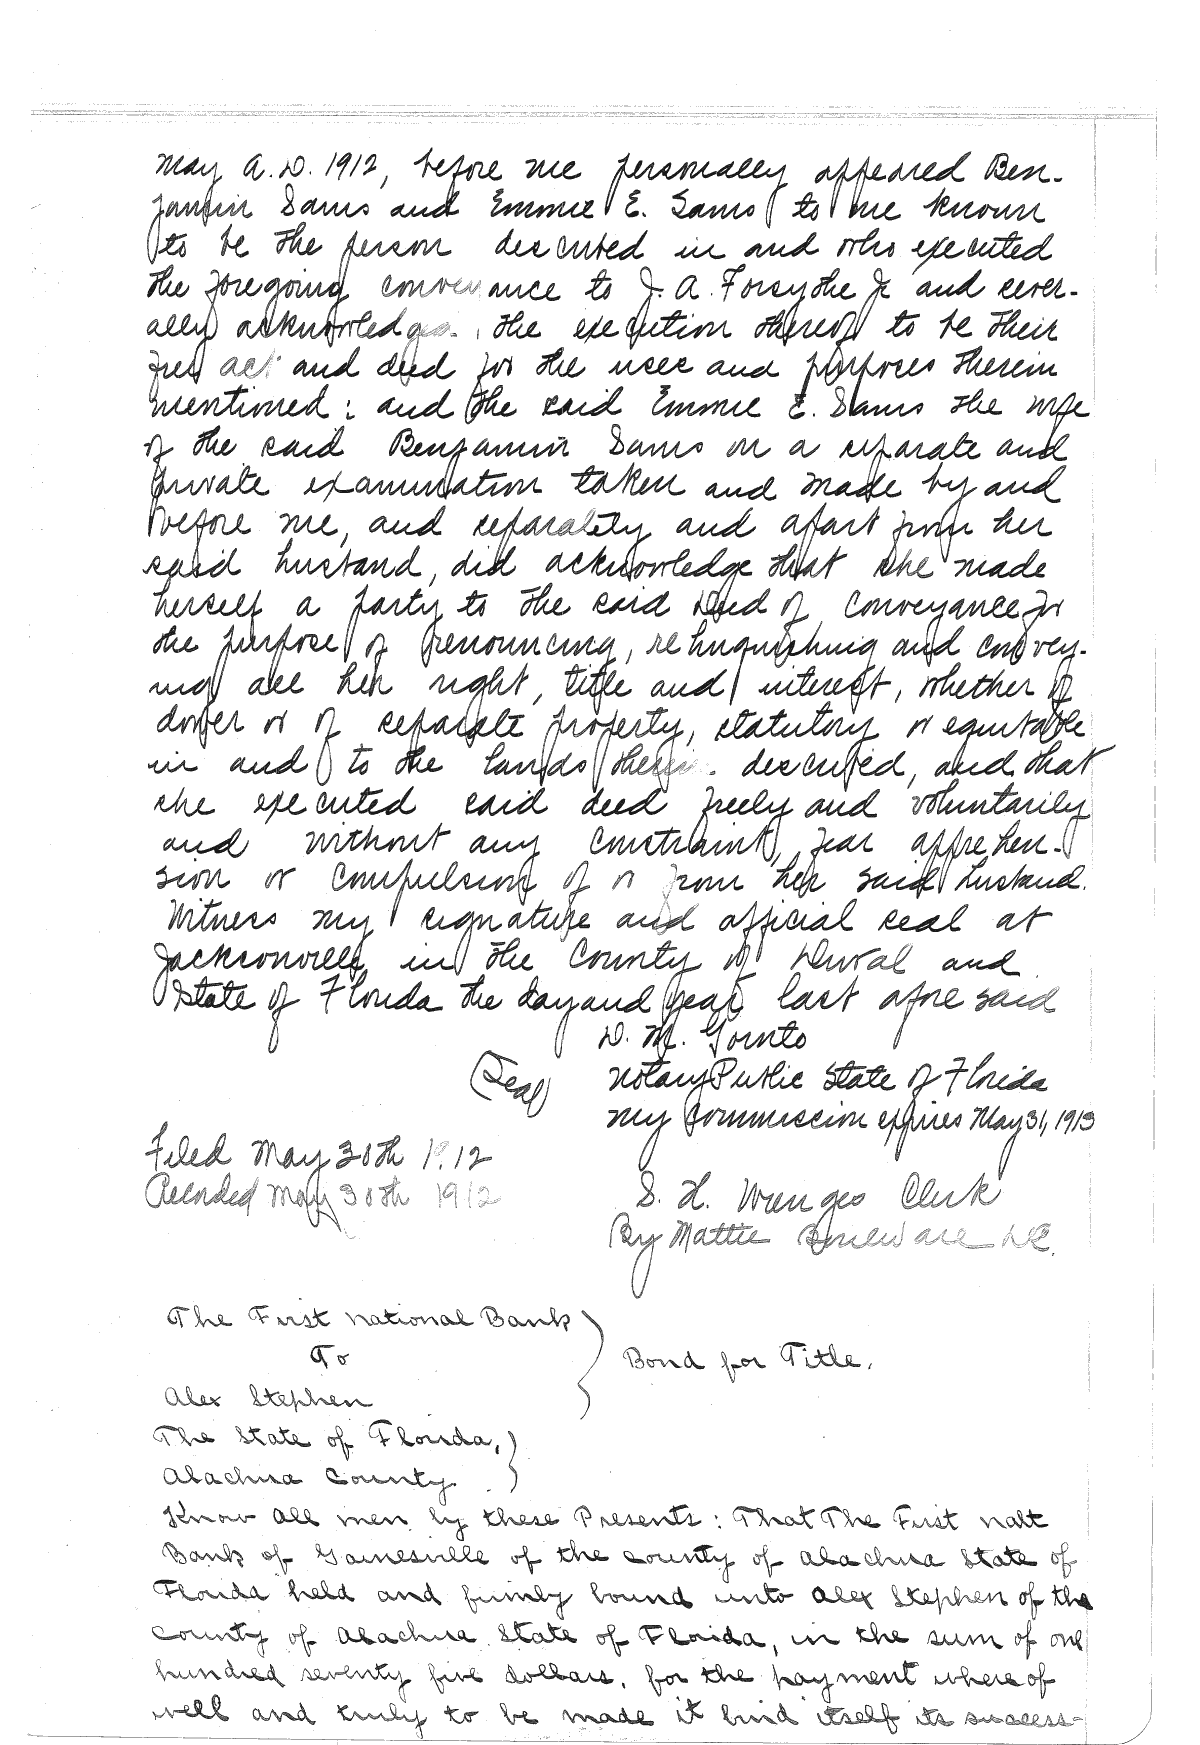 May A.D. 1912, before me personally appeared Ben-
jamin Sams and Emmie E. Sams to me known
to be the person described in and who executed
the foregoing conveyance to J. A. Forsythe Jr and sever-
ally acknowledged the execution thereof to be their
free act and deed for the uses and purposes therein
mentioned: and the said Emmie E. Sams the wife
of the said Benjamin Sams on a separate and
private examination taken and made by and
before me, and separately and apart from her
said husband, did acknowledge that she made
herself a party to the said Deed of Conveyance for
the purpose of renouncing, relinquishing and convey-
ing all her right, title and interest, whether of
dower or of separate property, statutory or equitable
in and to the lands therein described, and that
she executed said deed freely and voluntarily
and without any constraint, fear apprehen-
sion or compulsion of or from her said husband.
Witness my signature and official seal at
Jacksonville, in the County of Duval and
State of Florida the day and year last afore said
D. M. Gornto
(Seal) Notary Public State of Florida
My Commission expires May 31, 1913
Filed May 30th 1912
Recorded May 30th 1912
S. H. Wienges Clerk
By Mattie D.C.
The First National Bank
To
Bond for Title.
Alex Stephen
The State of Florida,
Alachua County.
Know all men by these Presents: That The First Natl
Bank of Gainesville of the county of Alachua State of
Florida held and firmly bound unto Alex Stephen of the
County of Alachua State of Florida, in the sum of one
hundred seventy five dollars, for the payment where of
well and truly to be made it bind itself its success-